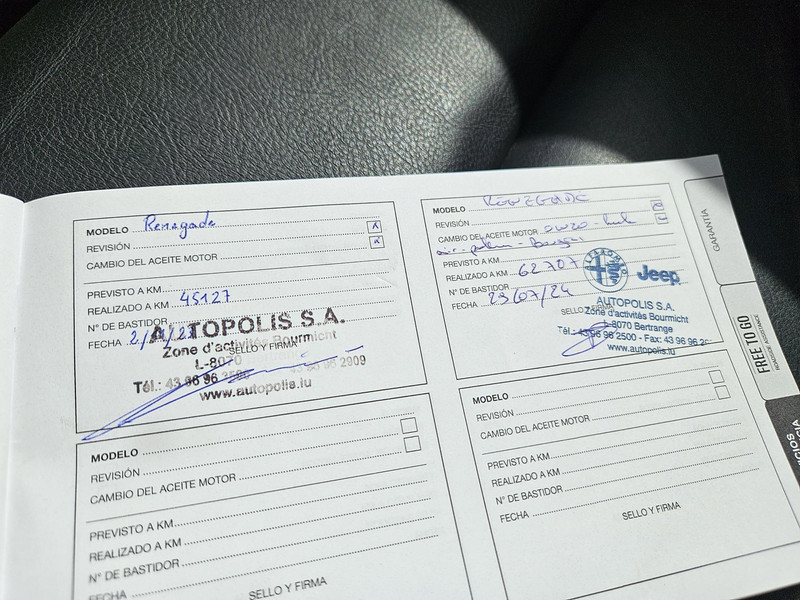 MODELO Renegade
REVISIÓN
CAMBIO DEL ACEITE MOTOR
PREVISTO A KM
REALIZADO A KM 45127
Nº DE BASTIDOR
FECHA
SELLO Y FIRMA
AUTOPOLIS S.A.
Zone d'activités Bourmicht
L-8070
Tél.: 43 96 96 2500
43 96 96 2909
www.autopolis.lu
MODELO RENEGADE
REVISIÓN
CAMBIO DEL ACEITE MOTOR 0W20
PREVISTO A KM
REALIZADO A KM 62707
Nº DE BASTIDOR
FECHA 29/07/24
SELLO Y FIRMA
Jeep
AUTOPOLIS S.A.
Zone d'activités Bourmicht
L-8070 Bertrange
Tél.: 43 96 96 2500 - Fax: 43 96 96
www.autopolis.lu
MODELO
REVISIÓN
CAMBIO DEL ACEITE MOTOR
PREVISTO A KM
REALIZADO A KM
Nº DE BASTIDOR
FECHA
SELLO Y FIRMA
MODELO
REVISIÓN
CAMBIO DEL ACEITE MOTOR
PREVISTO A KM
REALIZADO A KM
Nº DE BASTIDOR
FECHA
SELLO Y FIRMA
GARANTÍA
FREE TO GO
ROADSIDE ASSISTANCE